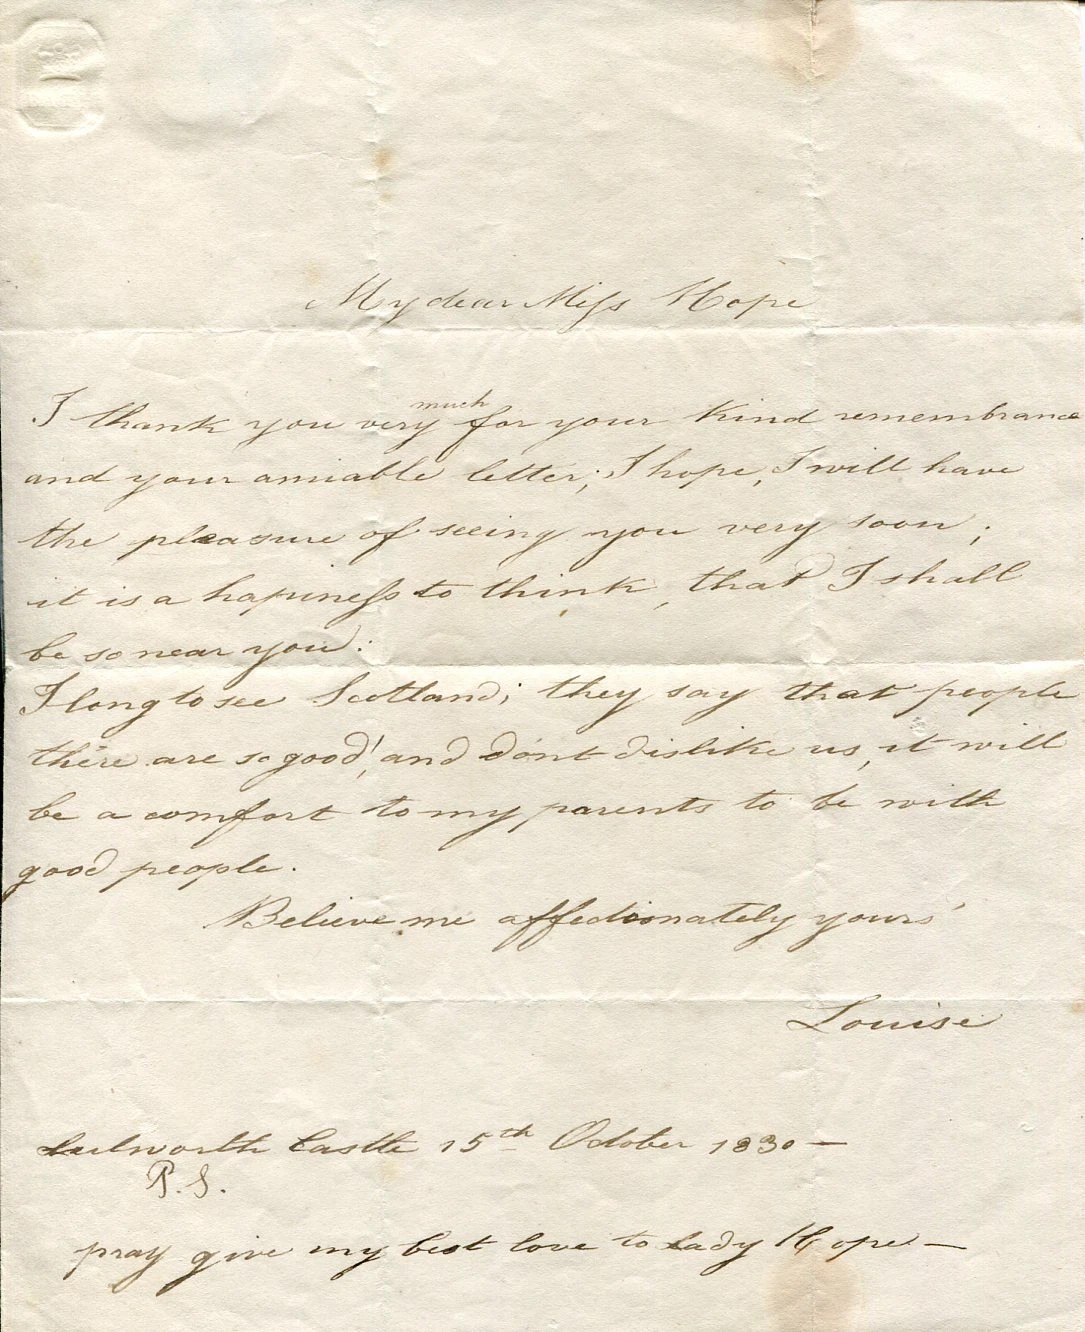 My dear Miss Hope
I thank you very much for your kind remembrance
and your amiable letter; I hope, I will have
the pleasure of seeing you very soon;
it is a hapiness to think, that I shall
be so near you.
I long to see Scotland; they say that people
there are so good! and dónt dislike us, it will
be a comfort to my parents to be with
good people.
Believe me affectionately yours'
Louise
Lulworth Castle 15th October 1830 —
P.S.
pray give my best love to Lady Hope —